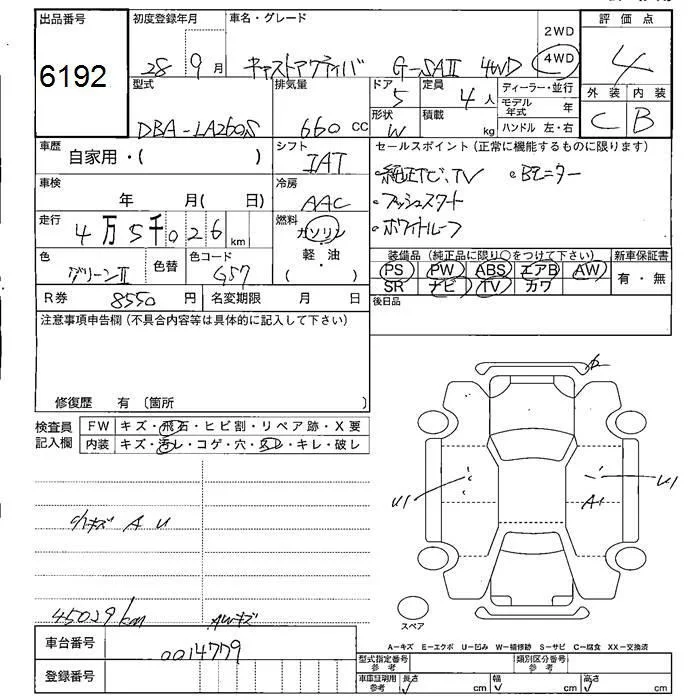 出品番号 初度登録年月 車名・グレード 評価点
6192 28 9月 キャストアクティバ G-SAII 4WD 2WD 4WD 4
型式 排気量 ドア 5 定員 4人 ディーラー・並行 外装 内装
DBA-LA260S 660 CC 形状 W 積載 kg モデル年式 年 C B
ハンドル 左・右
車歴 自家用・( ) シフト IAT セールスポイント (正常に機能するものに限ります)
車検 年 月( 日) 冷房 AAC ・純正ナビ、TV ・Bモニター
・プッシュスタート
走行 4万5千026km 燃料 ガソリン・軽・油 ( ) ・ホワイトルーフ
色 グリーンII 色替 色コード G57 装備品 (純正品に限り○をつけて下さい) 新車保証書
PS PW ABS エアB AW 有・無
SR ナビ TV カワ
R券 8550円 名変期限 月 日 後日品
注意事項申告欄 (不具合内容等は具体的に記入して下さい)
修復歴 有 〔箇所 〕
検査員記入欄 FW キズ・飛石・ヒビ割・リペア跡・X要
内装 キズ・汚レ・コゲ・穴・スレ・キレ・破レ
小キズ A U
45029km AWキズ
U1 A1 U1
スペア
A-キズ E-エクボ U-凹み W-補修跡 S-サビ C-腐食 XX-交換済
車台番号 0014779
登録番号
型式指定番号 参考 類別区分番号 参考
車庫証明用 参考 長さ cm 幅 cm 高さ cm